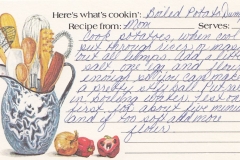 Here's what's cookin': Boiled Potato Dum
Recipe from: Mom Serves:
Cook potatoes, when not
put through ricer, or mash
out all lumps. Add a little
salt, one egg and flour
enough so you can make
a pretty stiff ball. Put
in boiling water, test one
first, for about five minutes
and if too soft add more
flour.